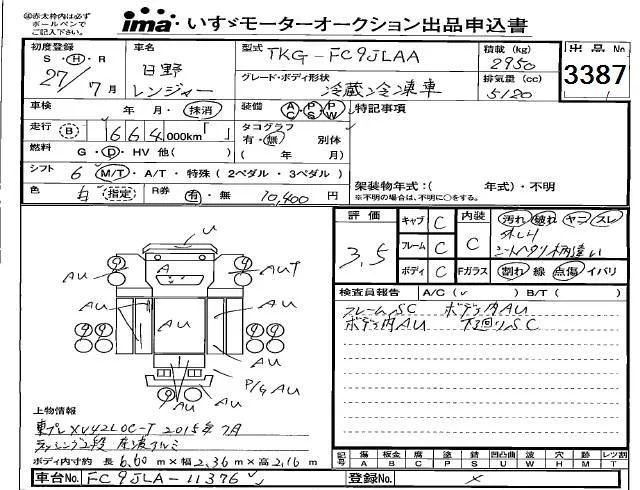 ㊟赤太枠内は必ず
ボールペンで
ご記入下さい。
ima いすゞモーターオークション出品申込書
初度登録 S・H・R 27/7月
車名 日野 レンジャー
型式 TKG-FC9JLAA
積載(kg) 2950
出品No 3387
グレード・ボディ形状 冷蔵冷凍車
排気量(cc) 5120
車検 年 月・抹消
装備 AC・PS・PW
特記事項
走行 B 664,000km
タコグラフ 有・無 別体
( 年 月)
燃料 G・D・HV 他( )
シフト 6 M/T・A/T・特殊(2ペダル・3ペダル)
架装物年式:( 年式)・不明
※不明の場合は、不明に○をする。
色 白 指定 R券 有・無 10,400円
評価 3.5
キャブ C
フレーム C
ボディ C
内装 C
汚れ 破れ ヤニ スレ
シートヘタリ柄違い
Fガラス 割れ 線 点傷 イバリ
検査員報告 A/C( ✓ ) B/T( )
フレームSC ボデー内AU
ボデー内AU 下廻りSC
U
AU
A
AUT
AU
AU
AU
AU
AU
P/G AU
AU
上物情報
東プレ XV42LOC-T 2015年7月
ラッシング2段 床凄アルミ
ボディ内寸約 長6.60m×幅2.36m×高2.16m
記号 傷A 板金B 腐C 塗P 錆S 凹凸曲U 波W 穴H 交換X 飛石M 錆T レツ割
車台No. FC9JLA-11376
登録No. ×